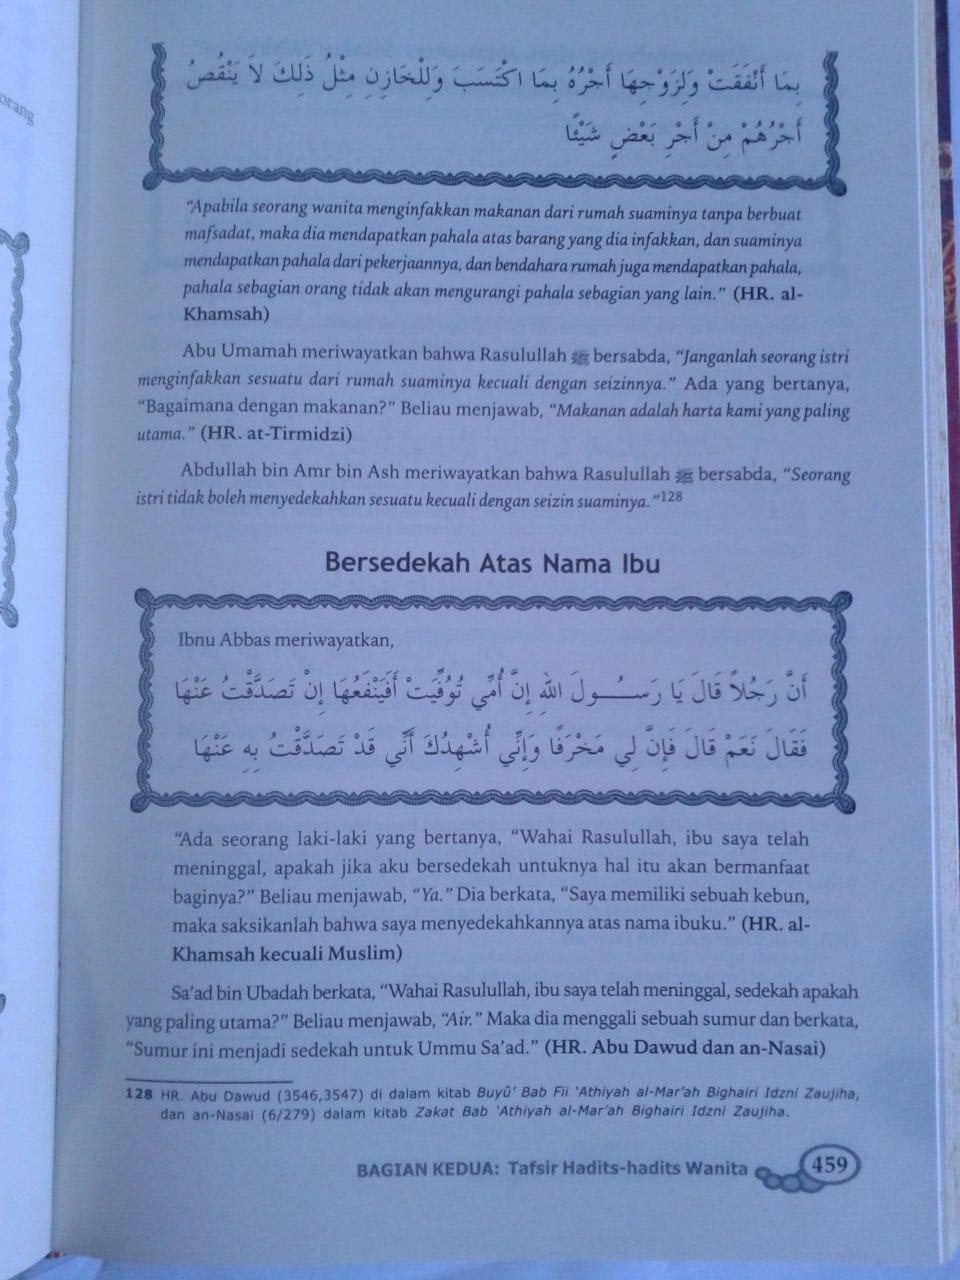 orang
بِمَا أَنْفَقَتْ وَلِزَوْجِهَا أَجْرُهُ بِمَا اكْتَسَبَ وَلِلْخَازِنِ مِثْلُ ذَلِكَ لاَ يَنْقُصُ
أَجْرُهُمْ مِنْ أَجْرِ بَعْضٍ شَيْئًا
“Apabila seorang wanita menginfakkan makanan dari rumah suaminya tanpa berbuat
mafsadat, maka dia mendapatkan pahala atas barang yang dia infakkan, dan suaminya
mendapatkan pahala dari pekerjaannya, dan bendahara rumah juga mendapatkan pahala,
pahala sebagian orang tidak akan mengurangi pahala sebagian yang lain.” (HR. al-
Khamsah)
Abu Umamah meriwayatkan bahwa Rasulullah ﷺ bersabda, “Janganlah seorang istri
menginfakkan sesuatu dari rumah suaminya kecuali dengan seizinnya.” Ada yang bertanya,
“Bagaimana dengan makanan?” Beliau menjawab, “Makanan adalah harta kami yang paling
utama.” (HR. at-Tirmidzi)
Abdullah bin Amr bin Ash meriwayatkan bahwa Rasulullah ﷺ bersabda, “Seorang
istri tidak boleh menyedekahkan sesuatu kecuali dengan seizin suaminya.”128
Bersedekah Atas Nama Ibu
Ibnu Abbas meriwayatkan,
أَنَّ رَجُلاً قَالَ يَا رَسُـــولَ اللهِ إِنَّ أُمِّي تُوُفِّيَتْ أَفَيَنْفَعُهَا إِنْ تَصَدَّقْتُ عَنْهَا
فَقَالَ نَعَمْ قَالَ فَإِنَّ لِي مَخْرَفًا وَإِنِّي أُشْهِدُكَ أَنِّي قَدْ تَصَدَّقْتُ بِهِ عَنْهَا
“Ada seorang laki-laki yang bertanya, “Wahai Rasulullah, ibu saya telah
meninggal, apakah jika aku bersedekah untuknya hal itu akan bermanfaat
baginya?” Beliau menjawab, “Ya.” Dia berkata, “Saya memiliki sebuah kebun,
maka saksikanlah bahwa saya menyedekahkannya atas nama ibuku.” (HR. al-
Khamsah kecuali Muslim)
Sa’ad bin Ubadah berkata, “Wahai Rasulullah, ibu saya telah meninggal, sedekah apakah
yang paling utama?” Beliau menjawab, “Air.” Maka dia menggali sebuah sumur dan berkata,
“Sumur ini menjadi sedekah untuk Ummu Sa’ad.” (HR. Abu Dawud dan an-Nasai)
128 HR. Abu Dawud (3546,3547) di dalam kitab Buyû’ Bab Fii ‘Athiyah al-Mar’ah Bighairi Idzni Zaujiha,
dan an-Nasai (6/279) dalam kitab Zakat Bab ‘Athiyah al-Mar’ah Bighairi Idzni Zaujiha.
BAGIAN KEDUA: Tafsir Hadits-hadits Wanita 459